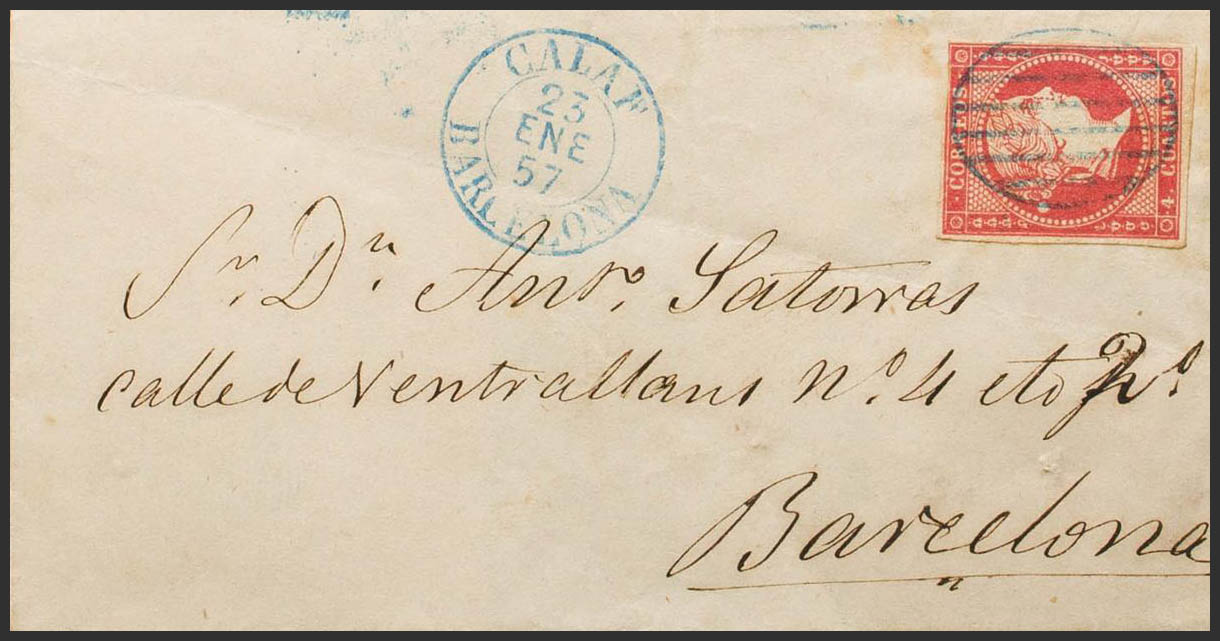 CALAF
23
ENE
57
BARCELONA
CORREOS
4 CORREOS
Sr. Dn. Anto. Satorras
calle de Ventrallans No. 4 cto 2o.
Barcelona